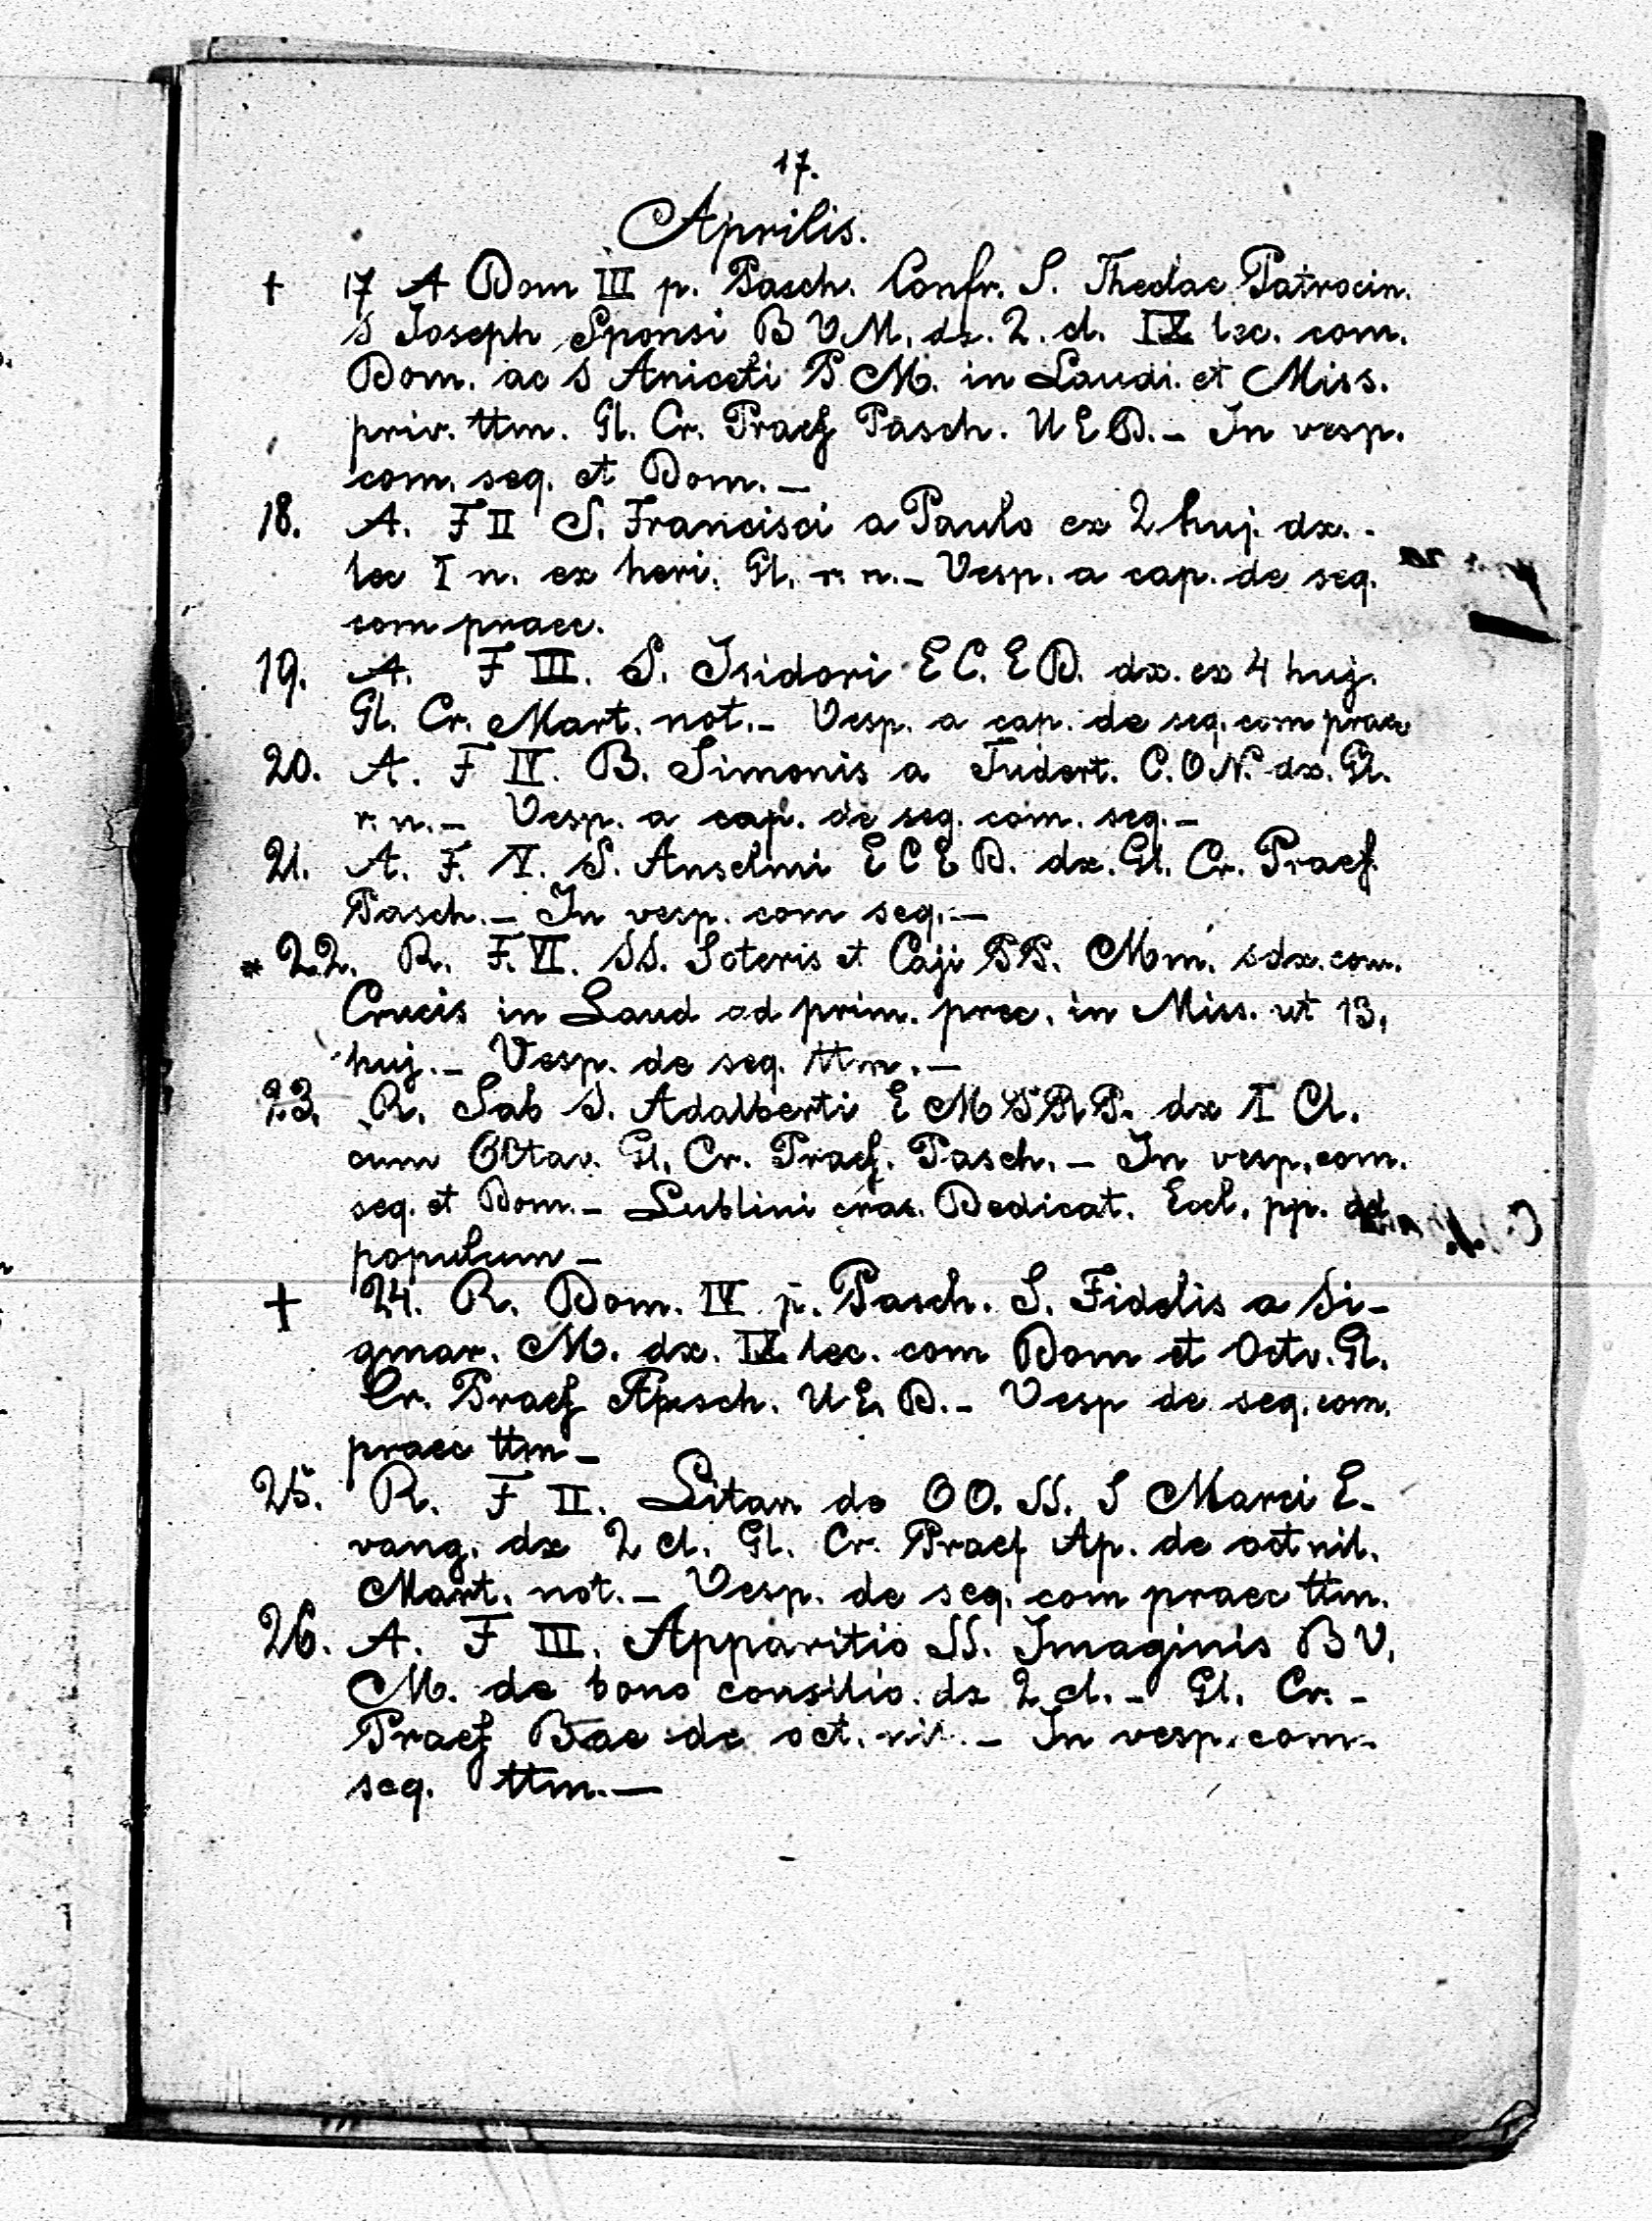 17.
Aprilis.
† 17 A Dom III p. Pasch. Confr. S. Theclae Patrocin.
S Joseph Sponsi B V M. dx. 2. cl. IX lec. com.
Dom. ac S Aniceti P. M. in Laudi. et Miss.
priv. ttm. Gl. Cr. Praef Pasch. U E D. – In vesp.
com. seq. et Dom. –
18. A. F II S. Francisci a Paulo ex 2 huj. dx. .
lec I n. ex heri. Gl. r. n. – Vesp. a cap. de seq.
com praec.
19. A. F III. S. Isidori E C. E D. dx. ex 4 huj.
Gl. Cr. Mart. not. – Vesp. a cap. de seq. com praec
20. A. F IV. B. Simonis a Tudert. C. O N. dx. Gl.
r. n. – Vesp. a cap. de seq. com. seq. –
21. A. F. V. S. Anselmi E C E D. dx. Gl. Cr. Praef.
Pasch. – In vesp. com seq. –
* 22. R. F. VI. SS. Soteris et Caji PP. Mm. sdx. com.
Crucis in Laud ad prim. prec. in Miss. ut 13.
huj. – Vesp. de seq. ttm. –
23. R. Sab S. Adalberti E M P R P. dx I Cl.
cum Octav. Gl. Cr. Praef. Pasch. – In vesp. com.
seq. et Dom. – Lublini cras. Dedicat. Eccl. pp. ad
populum –
† 24. R. Dom. IV p. Pasch. S. Fidelis a Si-
gmar. M. dx. IX lec. com Dom et Octv. Gl.
Cr. Praef Pasch. U E. D. – Vesp de seq. com.
praec ttm –
25. R. F II. Litan de OO. SS. S Marci E-
vang. dx 2 cl. Gl. Cr. Praef Ap. de oct nil.
Mart. not. – Vesp. de seq. com praec ttm.
26. A. F III. Apparitio SS. Imaginis B V.
M. de bono consilio. dx 2 cl. – Gl. Cr. –
Praef Bae de oct. nil. – In vesp. com.
seq. ttm. –